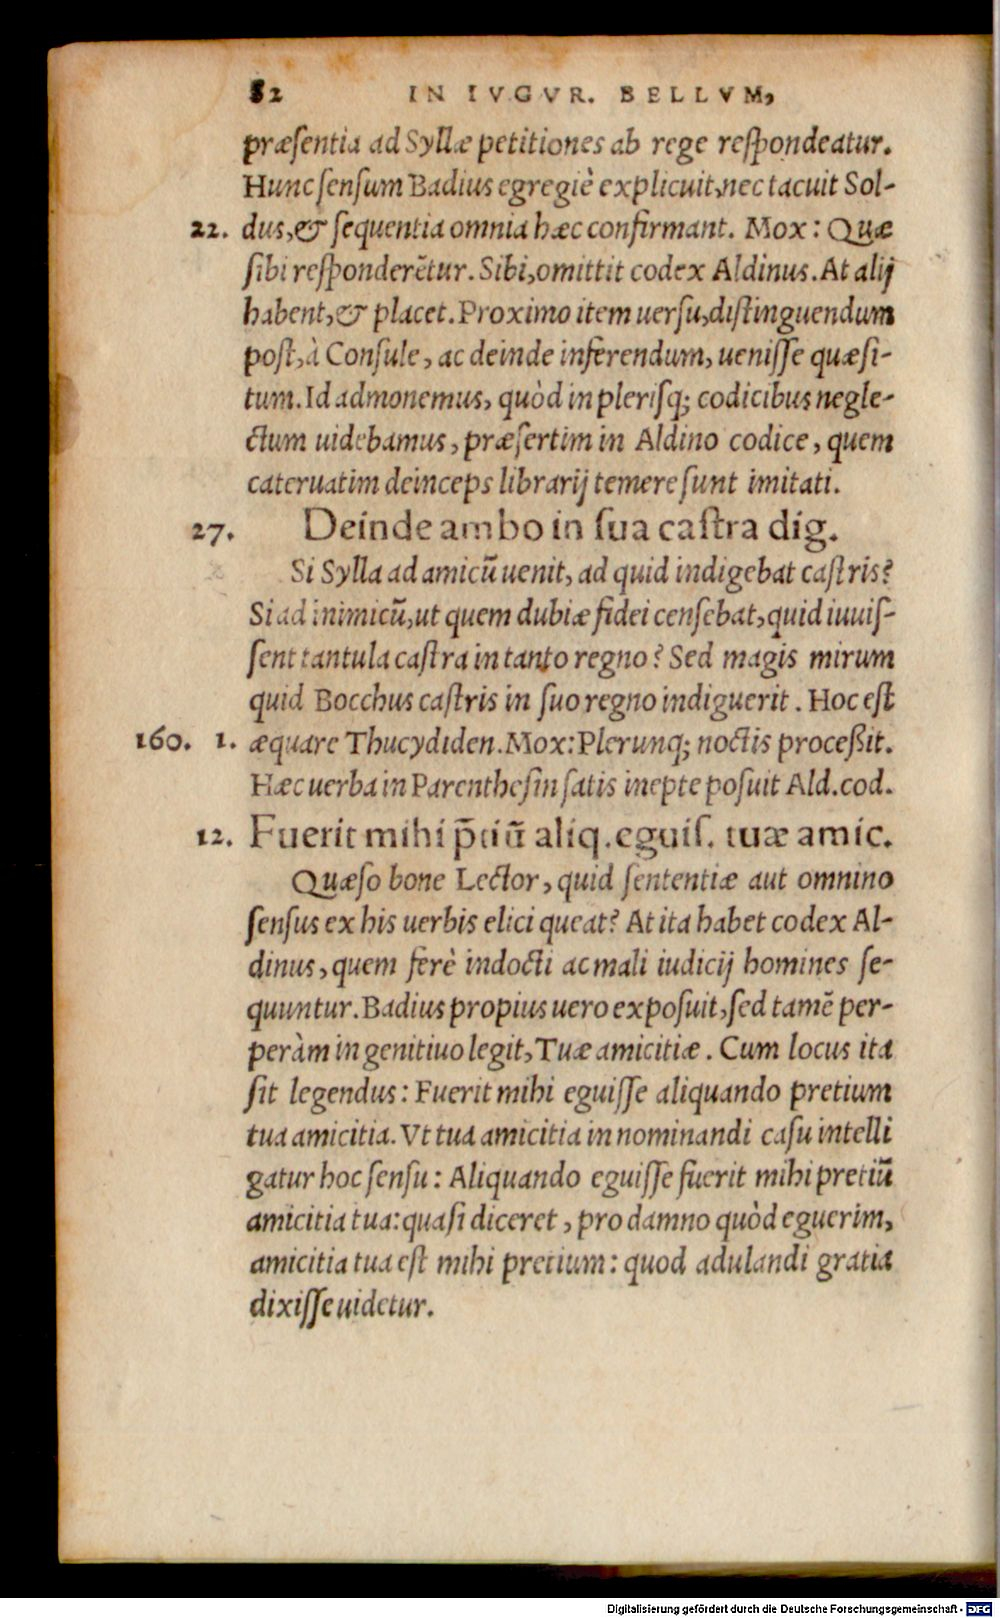 82 IN IVGVR. BELLVM,
præsentia ad Syllæ petitiones ab rege respondeatur.
Hunc sensum Badius egregiè explicuit, nec tacuit Sol-
22. dus, & sequentia omnia hæc confirmant. Mox: Quæ
sibi responderētur. Sibi, omittit codex Aldinus. At alij
habent, & placet. Proximo item uersu, distinguendum
post, à Consule, ac deinde inferendum, uenisse quæsi-
tum. Id admonemus, quòd in plerisq; codicibus negle-
ctum uidebamus, præsertim in Aldino codice, quem
cateruatim deinceps librarij temere sunt imitati.
27. Deinde ambo in sua castra dig.
Si Sylla ad amicū uenit, ad quid indigebat castris?
Si ad inimicū, ut quem dubiæ fidei censebat, quid iuuis-
sent tantula castra in tanto regno? Sed magis mirum
quid Bocchus castris in suo regno indiguerit. Hoc est
160. 1. æquare Thucydiden. Mox: Plerunq; noctis proceßit.
Hæc uerba in Parenthesin satis inepte posuit Ald. cod.
12. Fuerit mihi p̄tiū aliq. eguis. tuæ amic.
Quæso bone Lector, quid sententiæ aut omnino
sensus ex his uerbis elici queat? At ita habet codex Al-
dinus, quem ferè indocti ac mali iudicij homines se-
quuntur. Badius propius uero exposuit, sed tamē per-
peràm in genitiuo legit, Tuæ amicitiæ. Cum locus ita
sit legendus: Fuerit mihi eguisse aliquando pretium
tua amicitia. Vt tua amicitia in nominandi casu intelli
gatur hoc sensu: Aliquando eguisse fuerit mihi pretiū
amicitia tua: quasi diceret, pro damno quòd eguerim,
amicitia tua est mihi pretium: quod adulandi gratia
dixisse uidetur.
Digitalisierung gefördert durch die Deutsche Forschungsgemeinschaft - DFG